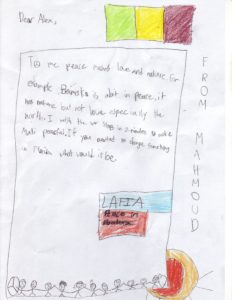 Dear Alex,
To me peace meant love and nature for
example Bamako is a lot in peace, it
has nature but not love especially the
north. I wish the war stops in 2 minutes to make
Mali peaceful. If you wanted to change something
in Florida what would it be.
FROM MAHMOUD
LAFIA
Peace in